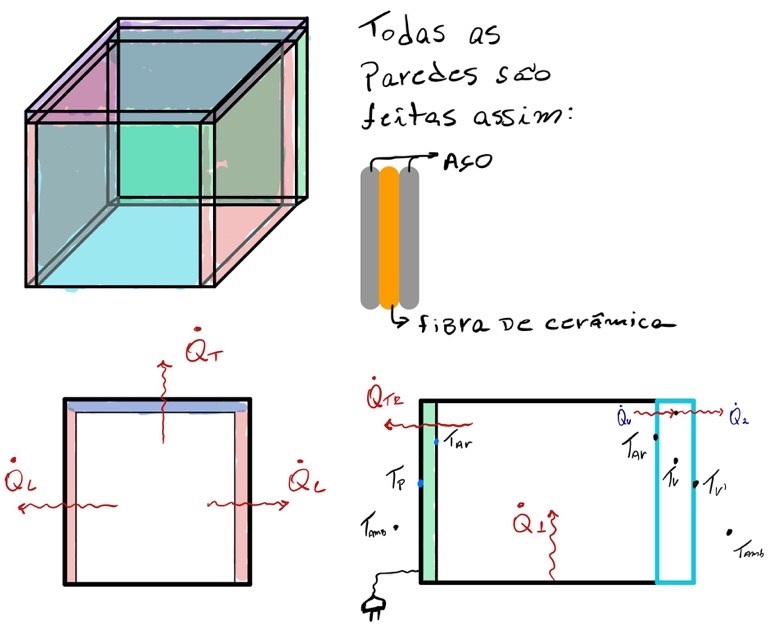 Todas as
Paredes são
feitas assim:
AÇO
fibra de cerâmica
Q̇T
Q̇L
Q̇L
Q̇TR
TAr
TP
TAmb
Q̇1
Q̇2
TAr
TV
TV'
TAmb